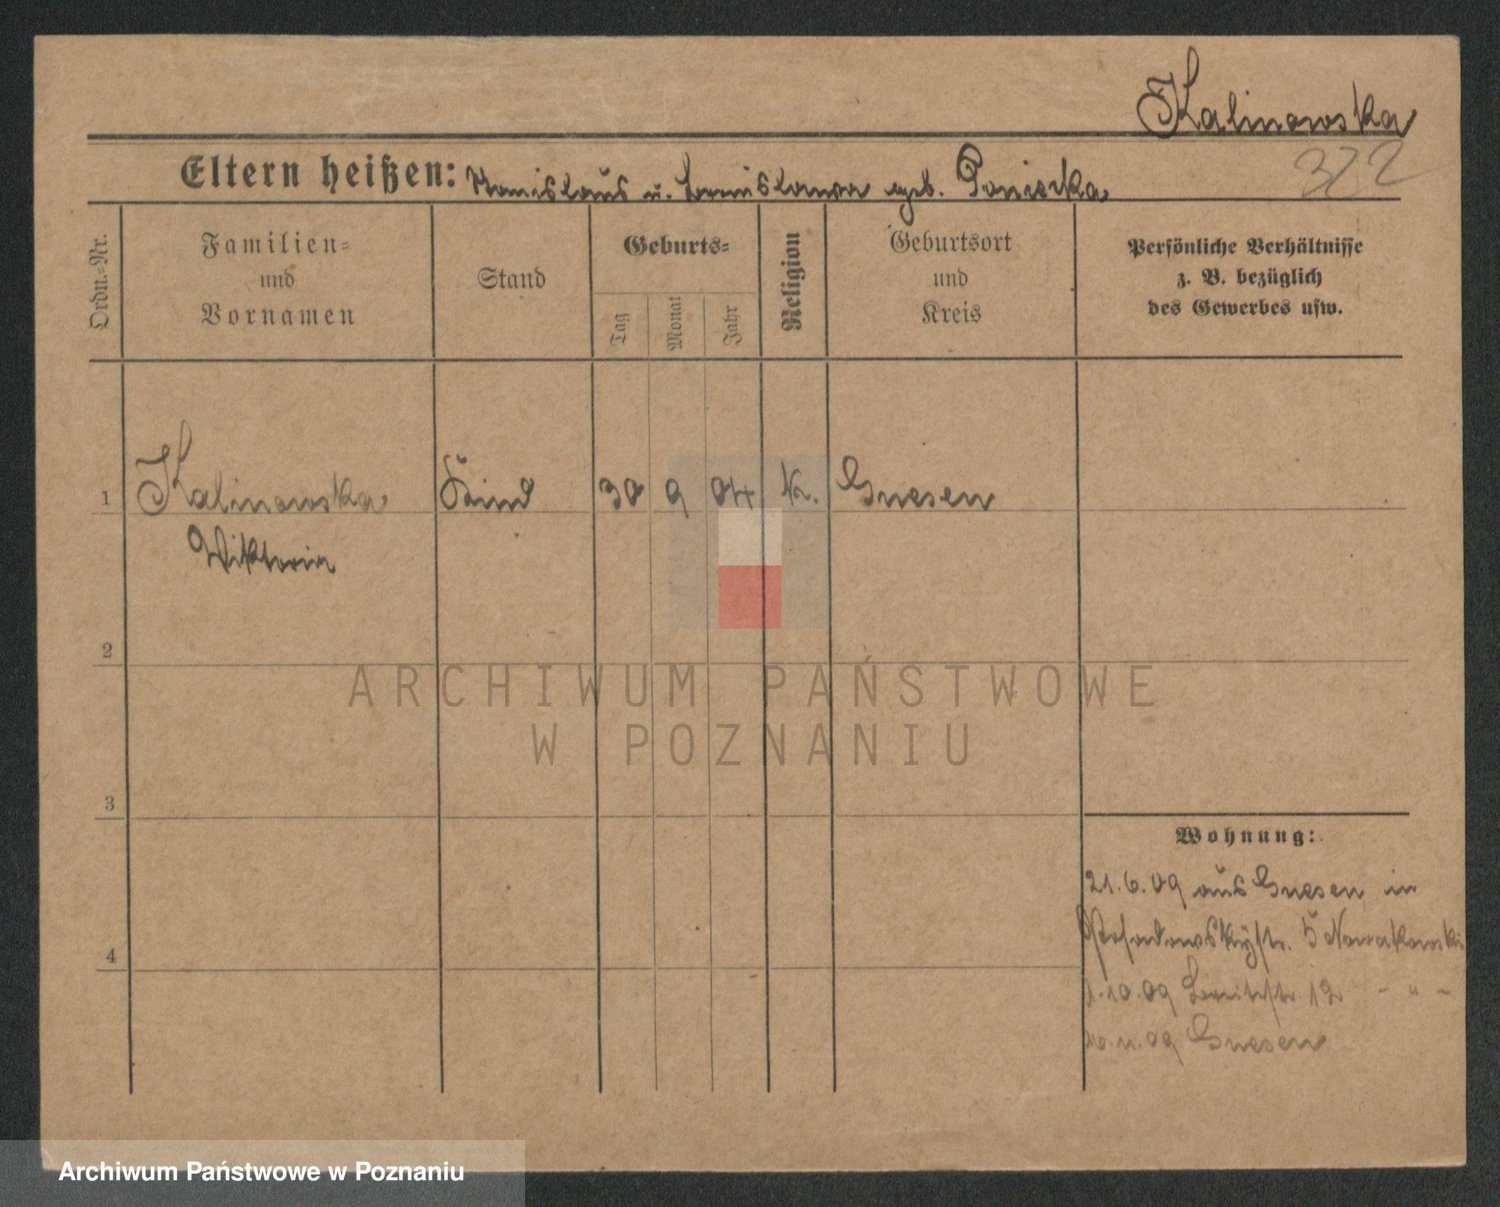 Kalinowska
322
Eltern heißen: Stanislaus u. geb.
Ordn.=Nr.
Familien=
und
Vornamen
Stand
Geburts=
Tag
Monat
Jahr
Religion
Geburtsort
und
Kreis
Persönliche Verhältnisse
z. B. bezüglich
des Gewerbes usw.
1 Kalinowska Kind 30 9 04 K. Gnesen
Wiktoria
2
ARCHIWUM PAŃSTWOWE
W POZNANIU
3
Wohnung:
21.6.09 aus Gnesen in
Posadowskystr. 5 Nowakowski
4
1.10.09 - " -
09 Gnesen
Archiwum Państwowe w Poznaniu